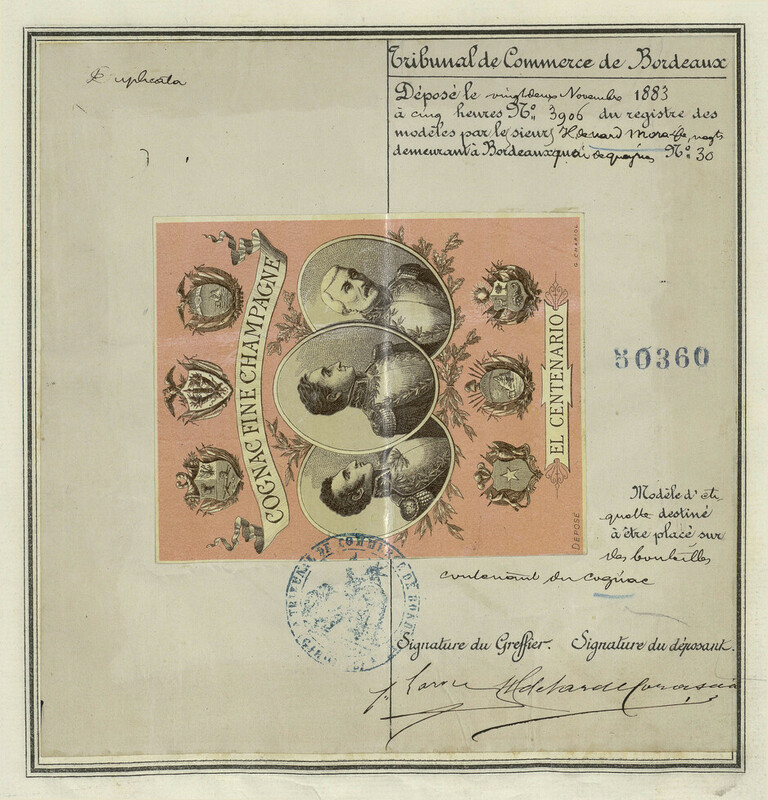 Duplicata
Tribunal de Commerce de Bordeaux
Déposé le vingt deux Novembre 1883
à cinq heures N° 3906 du registre des
modèles par le sieur
demeurant à Bordeaux quai de N° 30
COGNAC FINE CHAMPAGNE
EL CENTENARIO
G. CHARIOL
DÉPOSÉ
50360
Modèle d'éti
quette destiné
à être placé sur
des bouteilles
contenant du cognac
TRIBUNAL DE COMMERCE DE BORD
Signature du Greffier. Signature du déposant.